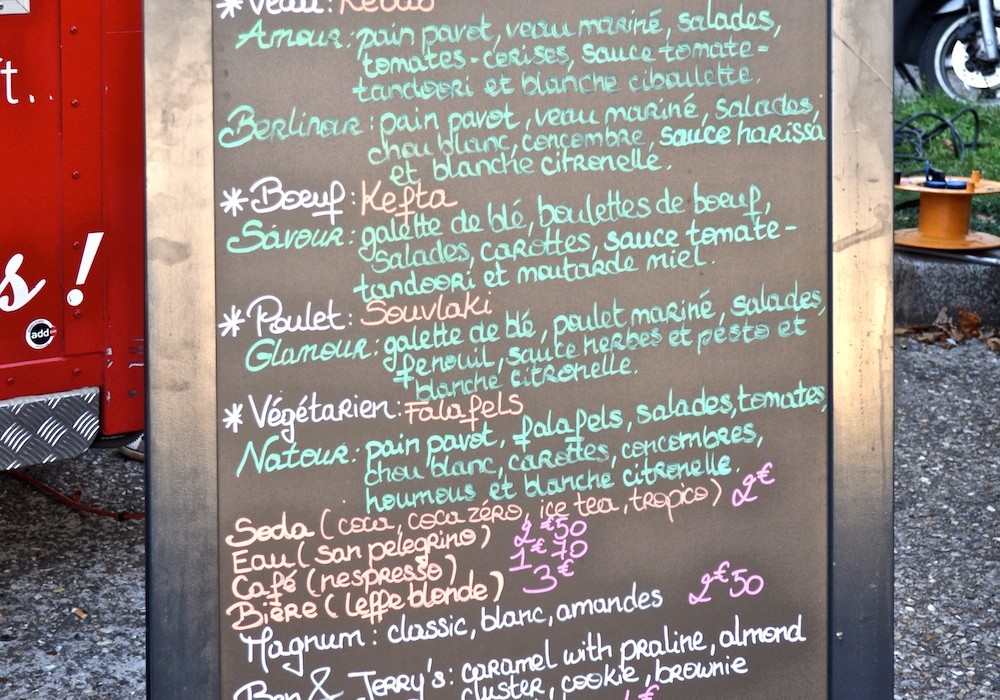 *Veau: Kebab
Amour: pain pavot, veau mariné, salades,
tomates-cerises, sauce tomate-
tandoori et blanche ciboulette.
Berlinour: pain pavot, veau mariné, salades,
chou blanc, concombre, sauce harissa
et blanche citronelle.
*Boeuf: Kefta
Savour: galette de blé, boulettes de boeuf,
salades, carottes, sauce tomate-
tandoori et moutarde miel.
*Poulet: Souvlaki
Glamour: galette de blé, poulet mariné, salades,
fenouil, sauce herbes et pesto et
blanche citronelle.
*Végétarien: Falafels
Natour: pain pavot, falafels, salades, tomates,
chou blanc, carottes, concombres,
houmous et blanche citronelle.
Soda (coca, coca zéro, ice tea, tropico) 2€
Eau (san pelegrino) 2€50
Café (nespresso) 1€70
Bière (leffe blonde) 3€
Magnum: classic, blanc, amandes 2€50
Ben & Jerry's: caramel with praline, almond
cluster, cookie, brownie
t..
s!
add